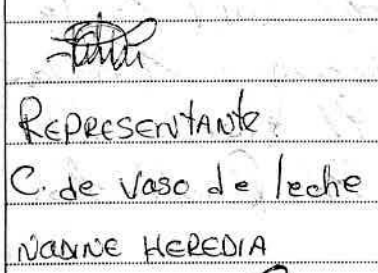 REPRESENTANTE.
C. de Vaso de leche
NADINE HEREDIA